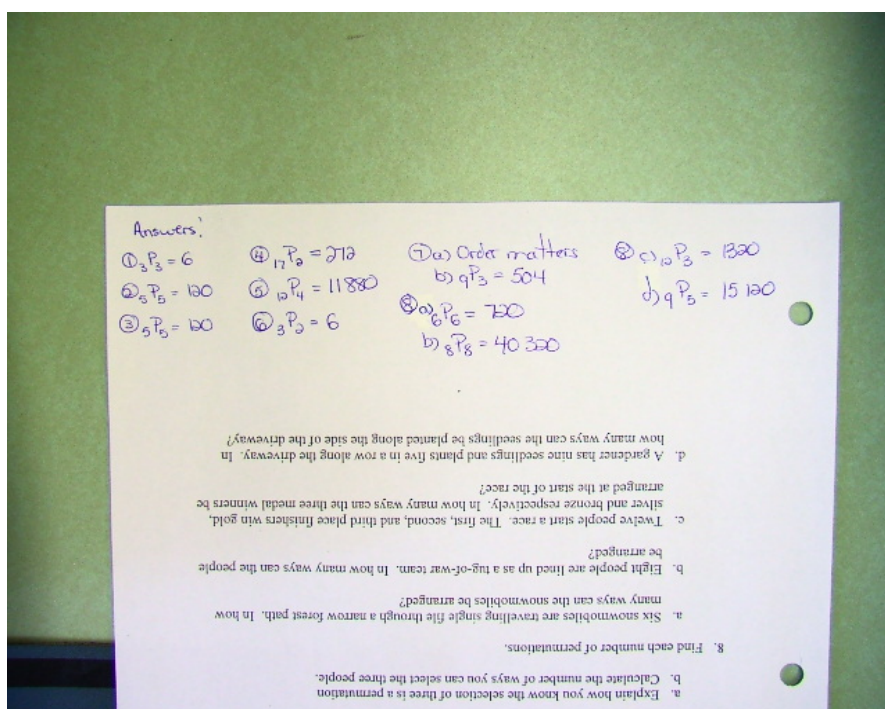 Answers!
① ₃P₃ = 6
② ₅P₅ = 120
③ ₅P₅ = 120
④ ₁₇P₂ = 272
⑤ ₁₂P₄ = 11880
⑥ ₃P₂ = 6
⑦ a) Order matters
b) ₉P₃ = 504
⑧ a) ₆P₆ = 720
b) ₈P₈ = 40 320
⑧ c) ₁₂P₃ = 1320
d) ₉P₅ = 15 120
a. Explain how you know the selection of three is a permutation
b. Calculate the number of ways you can select the three people.
8. Find each number of permutations.
a. Six snowmobiles are travelling single file through a narrow forest path. In how
many ways can the snowmobiles be arranged?
b. Eight people are lined up as a tug-of-war team. In how many ways can the people
be arranged?
c. Twelve people start a race. The first, second, and third place finishers win gold,
silver and bronze respectively. In how many ways can the three medal winners be
arranged at the start of the race?
d. A gardener has nine seedlings and plants five in a row along the driveway. In
how many ways can the seedlings be planted along the side of the driveway?